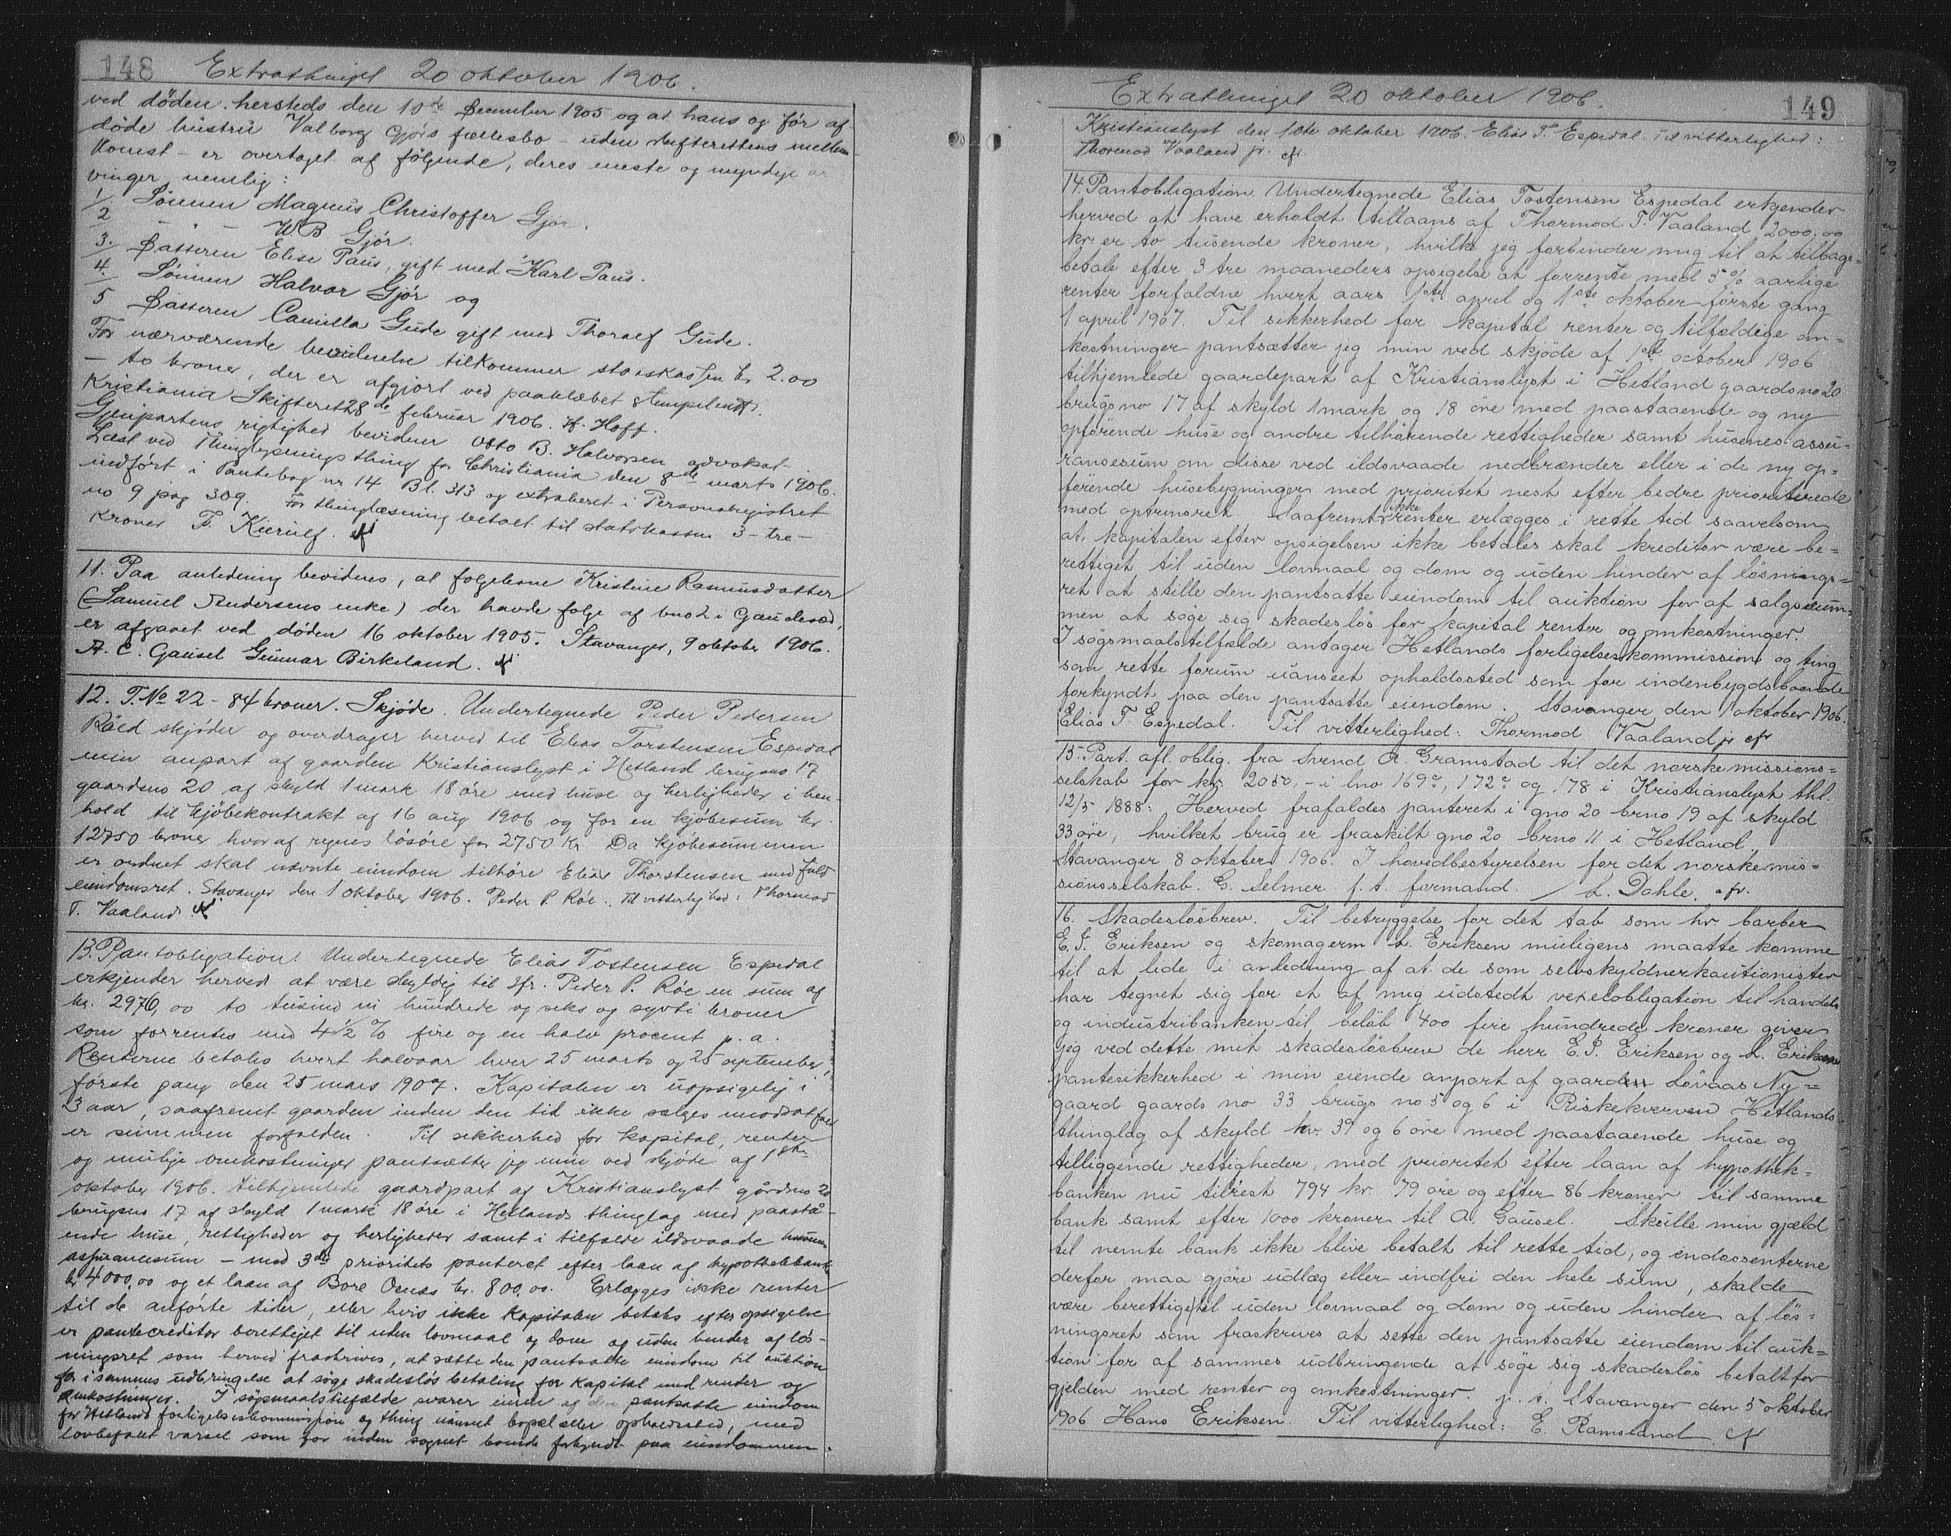 148 Extrathinget 20 oktober 1906.
ved döden hersteds den 10de December 1905 og at hans og før af
døde hustru Valborg Gjørs fællesbo - uden skifterettens mellem
komst - er overtaget af følgende, deres eneste og myndige ar
vinger nemlig:
1/ Sönnen Magnus Christoffer Gjør.
2 - " - W B Gjør.
3. Datteren Elise Paus, gift med Karl Paus.
4. Sönnen Halvor Gjør og
5 Datteren Camilla Gude gift med Thoralf Gude.
For nærværende bevidnelse tilkommer statskassen kr 2.00
- to kroner, der er afgjort ved paaklæbet stempelmrk.
Kristiania Skifteret 28de februar 1906. K. Hoff.
Gjenpartens rigtighed bevidner Otto B. Halvorsen advokat
Læst ved Thinglysningsthing for Christiania den 8de marts 1906.
indført i Pantebog nr 14 Bl. 313 og extraheret i Personalregistret
no 9 pag 309. For thinglæsning betalt til statskassen 3 - tre -
kroner F. Kierulf.
11. Paa anledning bevidnes, at folgekone Kristine Rasmusdatter
(Samuel Andersens enke) der havde folge af bno 2 i Gauslesad,
er afgaaet ved döden 16 oktober 1905. Stavanger, 9 oktober 1906.
A. C. Gausel Gunnar Birkeland.
12. T.No 22 - 84 kroner. Skjøde. Undertegnede Peder Pedersen
Röed skjøder og overdrager herved til Elias Torstensen Espedal
min anpart af gaarden Kristianslyst i Hetland brugsno 17
gaardsno 20, af skyld 1 mark 18 øre med huse og herligheder i hen-
hold til kjöbekontrakt af 16 aug 1906 og for en kjöbesum kr.
12750 kroner hvoraf regnes lösöre for 2750 kr. Da kjöbesummen
er ordnet skal nævnte eiendom tilhöre Elias Thorstensen med fuld
eiendomsret. Stavanger den 1 oktober 1906. Peder P. Röe. Til vitterlighed: Thormod
T. Vaaland.
13. Pantobligation. Undertegnede Elias Tostensen Espedal
erkjender herved at være skyldig til hr. Peder P. Röe en sum af
kr. 2976,00 to tusind ni hundrede og seks og sytti kroner
som forrentes med 4 1/2 % fire og en halv procent p. a.
Renterne betales hvert halvaar hver 25 marts og 25 september,
förste gang den 25 mars 1907. Kapitalen er uopsigelig i
3 aar, saafremt gaarden inden den tid ikke sælges imodsatfald
er summen forfalden. Til sikkerhed for kapital, renter
og mulige omkostninger pantsætter jeg min ved skjöde af 1ste
oktober 1906. tilhjemlede gaardpart af Kristianslyst gårdsno 20
brugsno 17 af skyld 1 mark 18 öre i Hetlands thinglag med paastå-
ende huse, rettigheder og herligheder samt i tilfælde ildsvaade husenes
assurancesum - med 3die prioritets panteret efter laan af hypothekbanken
kr 4000,00 og et laan af Bore Oens kr. 800,00. Erlægges ikke renter
til de anførte tider, eller hvis ikke kapitalen betales efter opsigelse
er pantecreditor berettiget til uden lovmaal og dom og uden hinder af lös-
ningsret som herved fraskrives, at sætte den pantsatte eiendom til auction
for i sammes udbringelse at søge skadesløs betaling for kapital med renter og
omkostninger. I søgsmaalstilfælde svarer eieren af den pantsatte eiendom
for Hetlands forligelseskommission og thing uanseet bopæl eller opholdssted, med
lovbefalet varsel som for inden sognet boende forkyndt paa eiendommen.
Extrathinget 20 oktober 1906. 149
Kristianslyst den 10te oktober 1906. Elias T. Espedal. Til vitterlighed:
Thormod Vaaland jr.
14. Pantobligation Undertegnede Elias Tostensen Espedal erkjender
herved at have erholdt tillaans af Thormod T. Vaaland 2000,00
kr er to tusende kroner, hvilke jeg forbinder mig til at tilbage-
betale efter 3 tre maaneders opsigelse at forrente med 5% aarlige
renter forfaldne hvert aars 1ste april og 1ste oktober første gang
1 april 1907. Til sikkerhed for kapital renter og tilfældige om-
kostninger pantsætter jeg min ved skjøde af 1ste october 1906
tilhjemlede gaardepart af Kristianslyst i Hetland gaardsno 20
brugsno 17 af skyld 1 mark og 18 öre med paastaaende og ny
opførende huse og andre tilhørende rettigheder samt husenes assu-
rancesum om disse ved ildsvaade nedbrænder eller i de ny op-
førende husebygninger med prioritet nest efter bedre prioriterede
med optrinsret. Saafremt ikke renter erlægges i rette tid saavelsom
at kapitalen efter opsigelsen ikke betales skal kreditor være be-
rettiget til uden lovmaal og dom og uden hinder af løsnings-
ret at stille den pantsatte eiendom til auktion for af salgssum-
men at søge sig skadesløs for kapital renter og omkostninger.
I søgsmaalstilfælde antager Hetlands forligelseskommission og ting
som rette forum uanseet opholdssted som for indenbygdsboende
forkyndt paa den pantsatte eiendom. Stavanger den 1 oktober 1906.
Elias T. Espedal. Til vitterlighed: Thormod Vaaland jr
15. Part. afl. oblig. fra Svend A. Gramstad til det norske missions-
selskab for kr. 2050,- i lno 169a, 172a og 178 i Kristianslyst thl.
12/5 1888: Herved frafaldes panteret i gno 20 brno 19 af skyld
33 øre, hvilket brug er fraskilt gno 20 brno 11 i Hetland,
Stavanger 8 oktober 1906. I hovedbestyrelsen for det norske mis-
sionsselskab. C. Selmer f. t. formand. / L. Dahle.
16. Skadesløsbrev. Til betryggelse for det tab som hr barber
E. J. Eriksen og skomagerm L. Eriksen muligens maatte komme
til at lide i anledning af at de som selvskyldnerkautionister
har tegnet sig for et af mig udstedt vexelobligation til handels
og industribanken til beløb 400 fire hundrede kroner giver
jeg ved dette mit skadesløsbrev de herr E. J. Eriksen og L. Eriksen
pantesikkerhed i min eiende anpart af gaarden Løvaas Ny-
gaard gaards no 33 brugs no 5 og 6 i Riskekverven Hetlands
thinglag af skyld kr. 39 og 6 øre med paastaaende huse og
tilliggende rettigheder, med prioritet efter laan af hypothek-
banken nu tilrest 794 kr. 79 øre og efter 86 kroner til samme
bank samt efter 1000 kroner til A. Gausel. Skulle min gjæld
til nemte bank ikke blive betalt til rette tid, og endossenterne
derfor maa gjøre udlæg eller indfri den hele sum, skal de
være berettiget til uden lovmaal og dom og uden hinder af løs-
ningsret som fraskrives at sette den pantsatte eiendom til auk-
tion for af sammes udbringende at søge sig skadesløs betalt for
gjelden med renter og omkostninger. p. t. Stavanger den 5 oktober
1906 Hans Eriksen. Til vitterlighed: E. Ramsland.